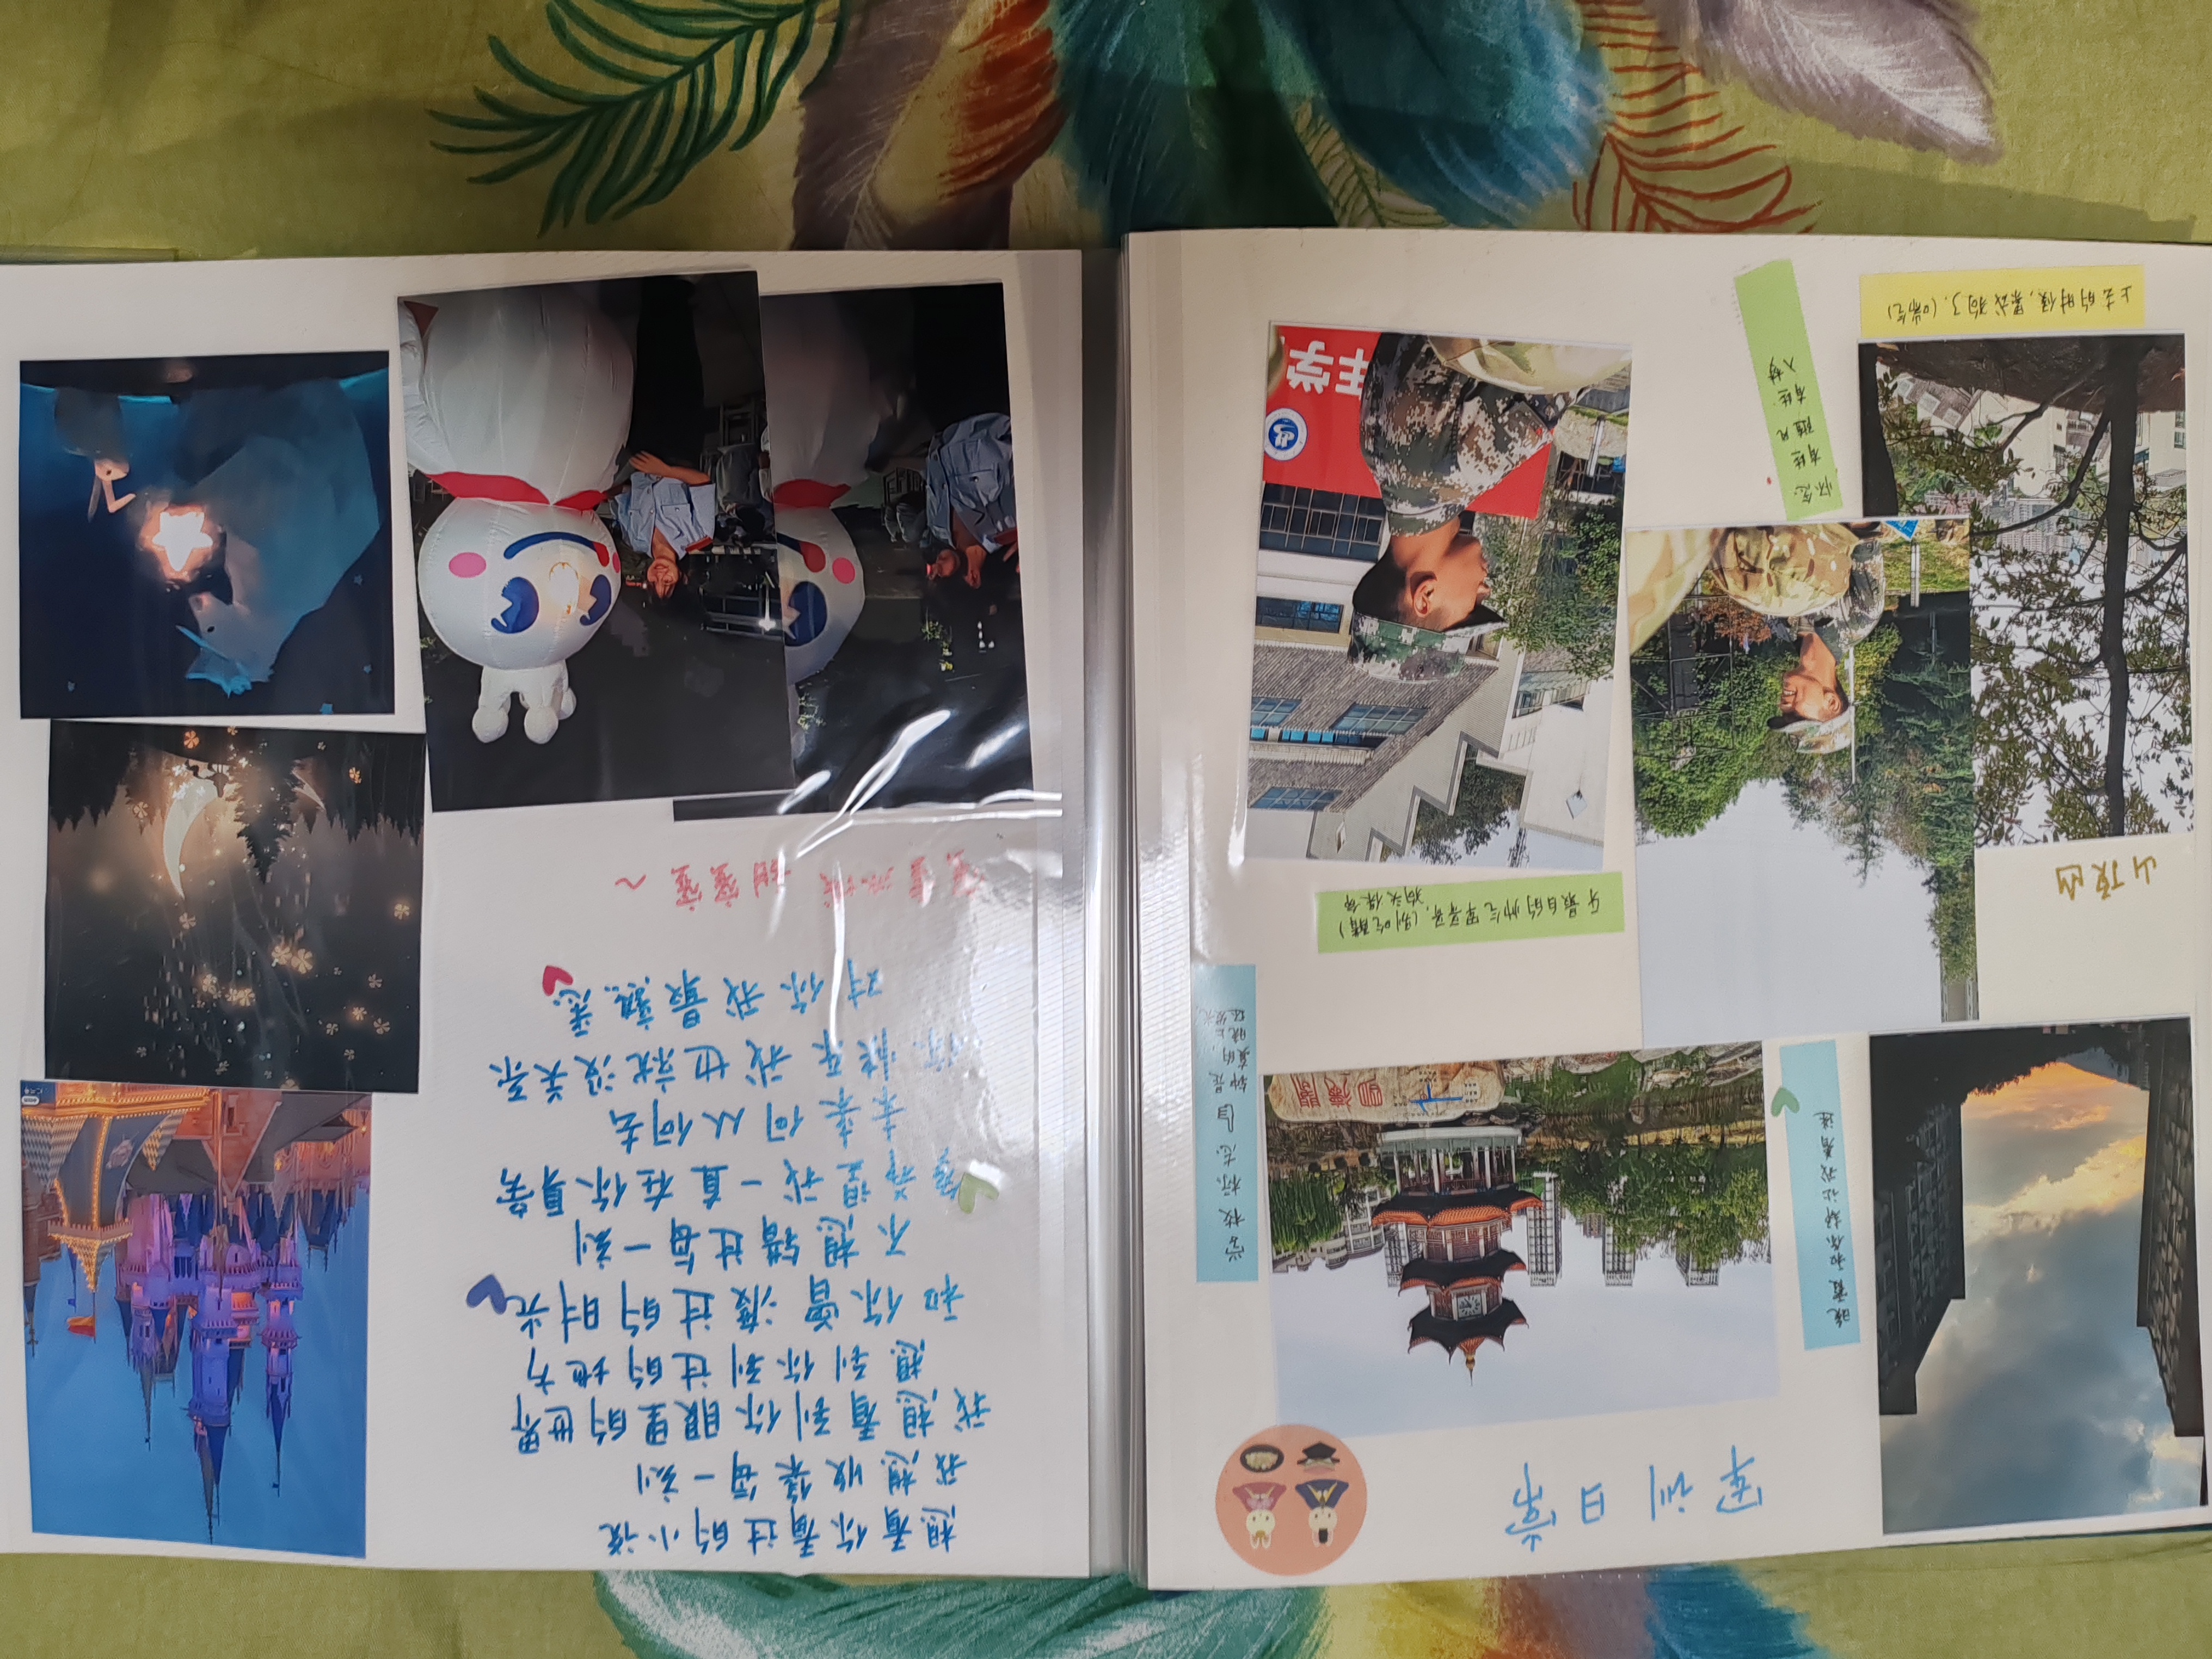 军训日常
晚霞和你都让我着迷
明德阁
学校标志
钟是
真的,
晚上
还发光
山顶
牙最白的帅气军哥哥,(别吃醋)
狗头保命
年学
怀念
有些
随风
有些
入梦
上去的时候,累成狗了,(喘气)
想看你看过的小说
我想收集每一刻
我想看到你眼里的世界
想到你到过的地方
和你曾渡过的时光
不想错过每一刻
多希望我一直在你身旁
未来何从何去
你快乐我也就没关系
对你我最熟悉
蜜雪冰城 甜蜜蜜～